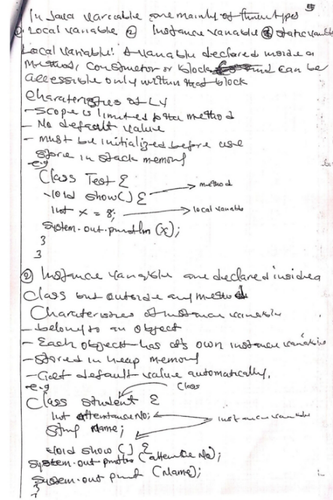 In Java variable are mainly of three types
① Local variable ② Instance variable ③ static variable
Local variable: A variable declared inside a
method, constructor or block and can be
accessible only within that block
Charateristics of LV
- Scope is limited to the method
- No default value
- must be initialized before use
Store in stack memory
e.g
Class Test {
void show() { → method
int x = 8; → local variable
System.out.println(x);
}
}
② Instance variable are declared inside a
Class but outside any method
Characteristics of instance variable
- belong to an object
- Each object has its own instance variable
- stored in heap memory
- Get default value automatically.
e.g Class
Class student {
int attendance No; instance variable
string Name;
void show () {
System.out println (attendance No);
System.out print (Name);
}